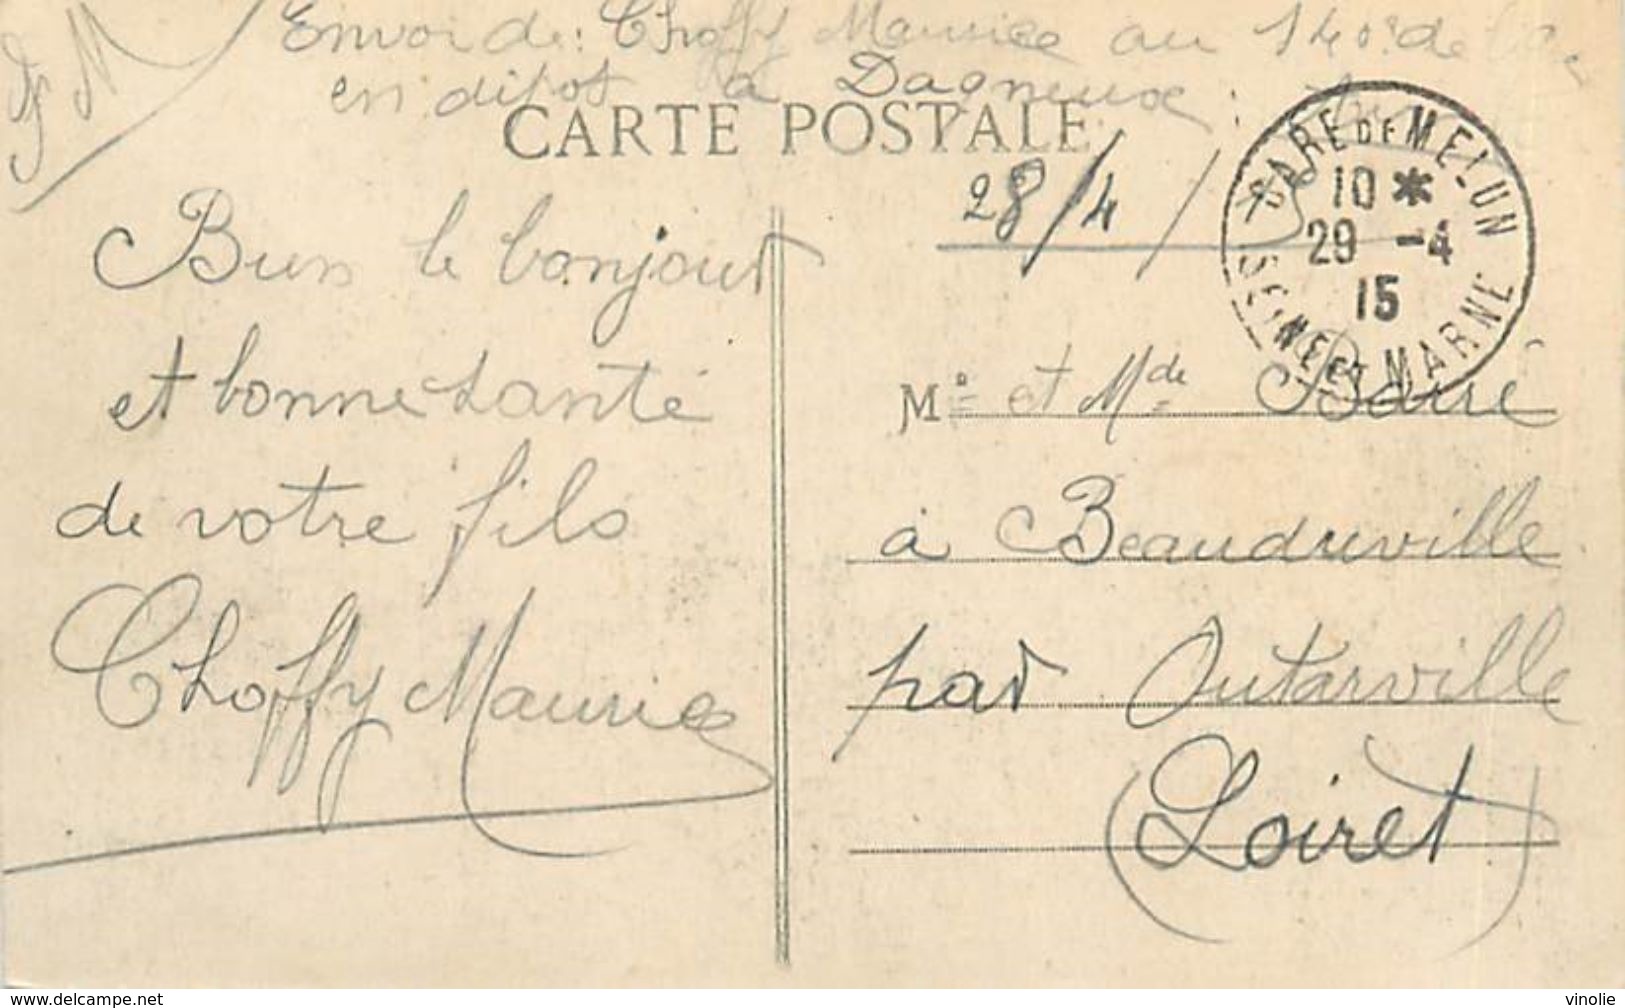 Envoi de : Choffy Maurice au 140e de
en dépot à Dagneux
CARTE POSTALE
28/4/
GARE DE MELUN
10 *
29 -4
15
SEINE ET MARNE
Bien le bonjour
et bonne santé
de votre fils
Choffy Maurice
Mr et Mde
à Beaudreville
par Outarville
(Loiret)
www.delcampe.net
vinolie